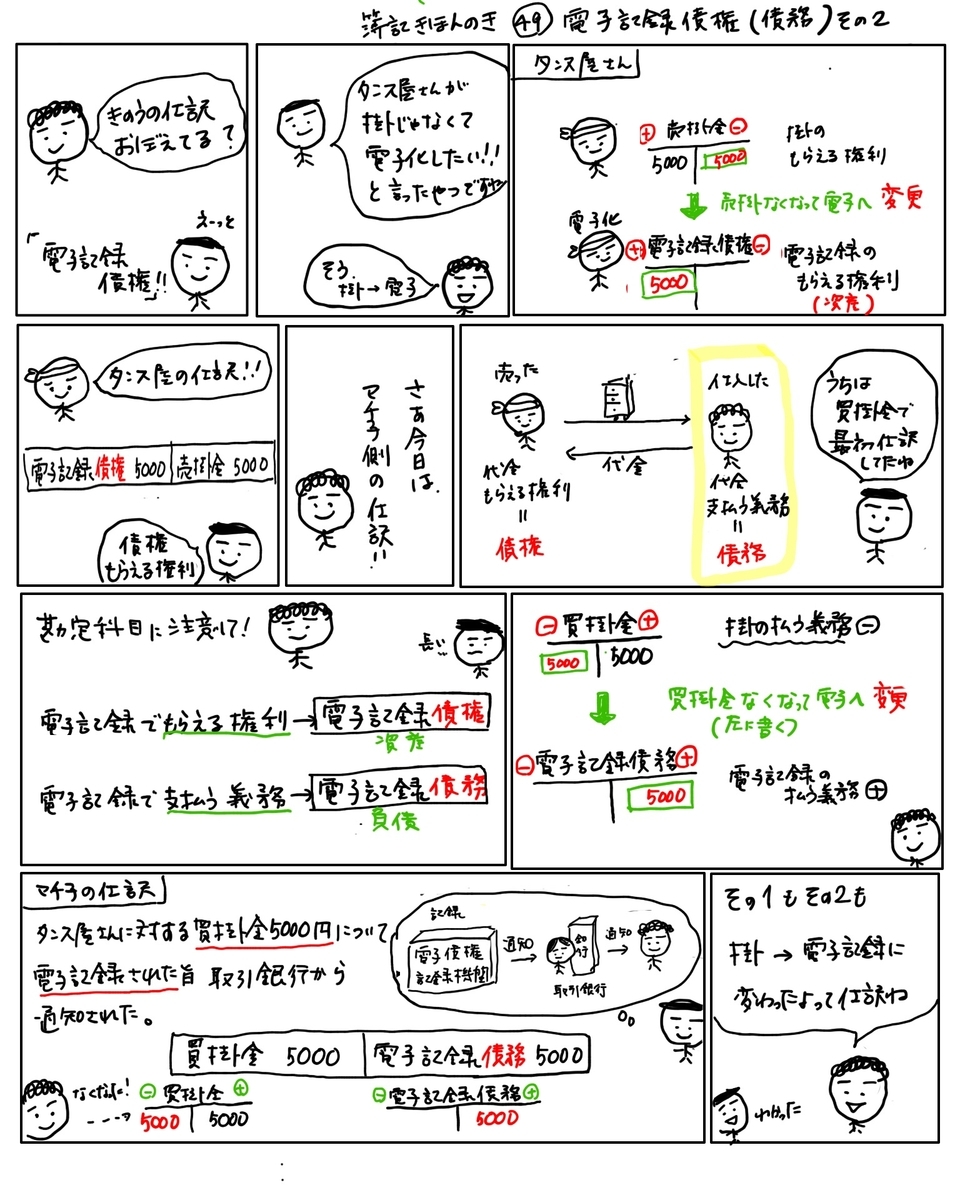 簿記きほんのき ㊾ 電子記録債権(債務)その2
きのうの仕訳
おぼえてる?
えーっと
「電子記録
債権」!!
タンス屋さんが
掛じゃなくて
電子化したい!!
と言ったやつですね
そう
掛→電子
タンス屋さん
⊕ 売掛金 ⊖
5000 5000
掛の
もらえる権利
売掛なくなって電子へ 変更
電子化
⊕ 電子記録債権 ⊖
5000
電子記録の
もらえる権利
(資産)
タンス屋の仕訳!!
電子記録債権 5000 売掛金 5000
債権
もらえる権利
さあ今日は
マチ子側の仕訳!!
売った
代金
もらえる権利
=
債権
代金
仕入した
代金
支払う義務
=
債務
うちは
買掛金で
最初仕訳
してたね
勘定科目に注意して!
長い
電子記録でもらえる権利→電子記録債権
資産
電子記録で支払う義務→電子記録債務
負債
⊖ 買掛金 ⊕
5000 5000
掛の払う義務⊖
買掛金なくなって電子へ 変更
(左に書く)
⊖ 電子記録債務 ⊕
5000
電子記録の
払う義務⊕
マチ子の仕訳
タンス屋さんに対する買掛金5000円について
電子記録された旨 取引銀行から
通知された。
記録
電子債権
記録機関
通知
銀行
取引銀行
通知
買掛金 5000 電子記録債務 5000
なくなった!
⊖ 買掛金 ⊕
5000 5000
⊖ 電子記録債務 ⊕
5000
その1もその2も
掛→電子記録に
変わったよって仕訳ね
わかった